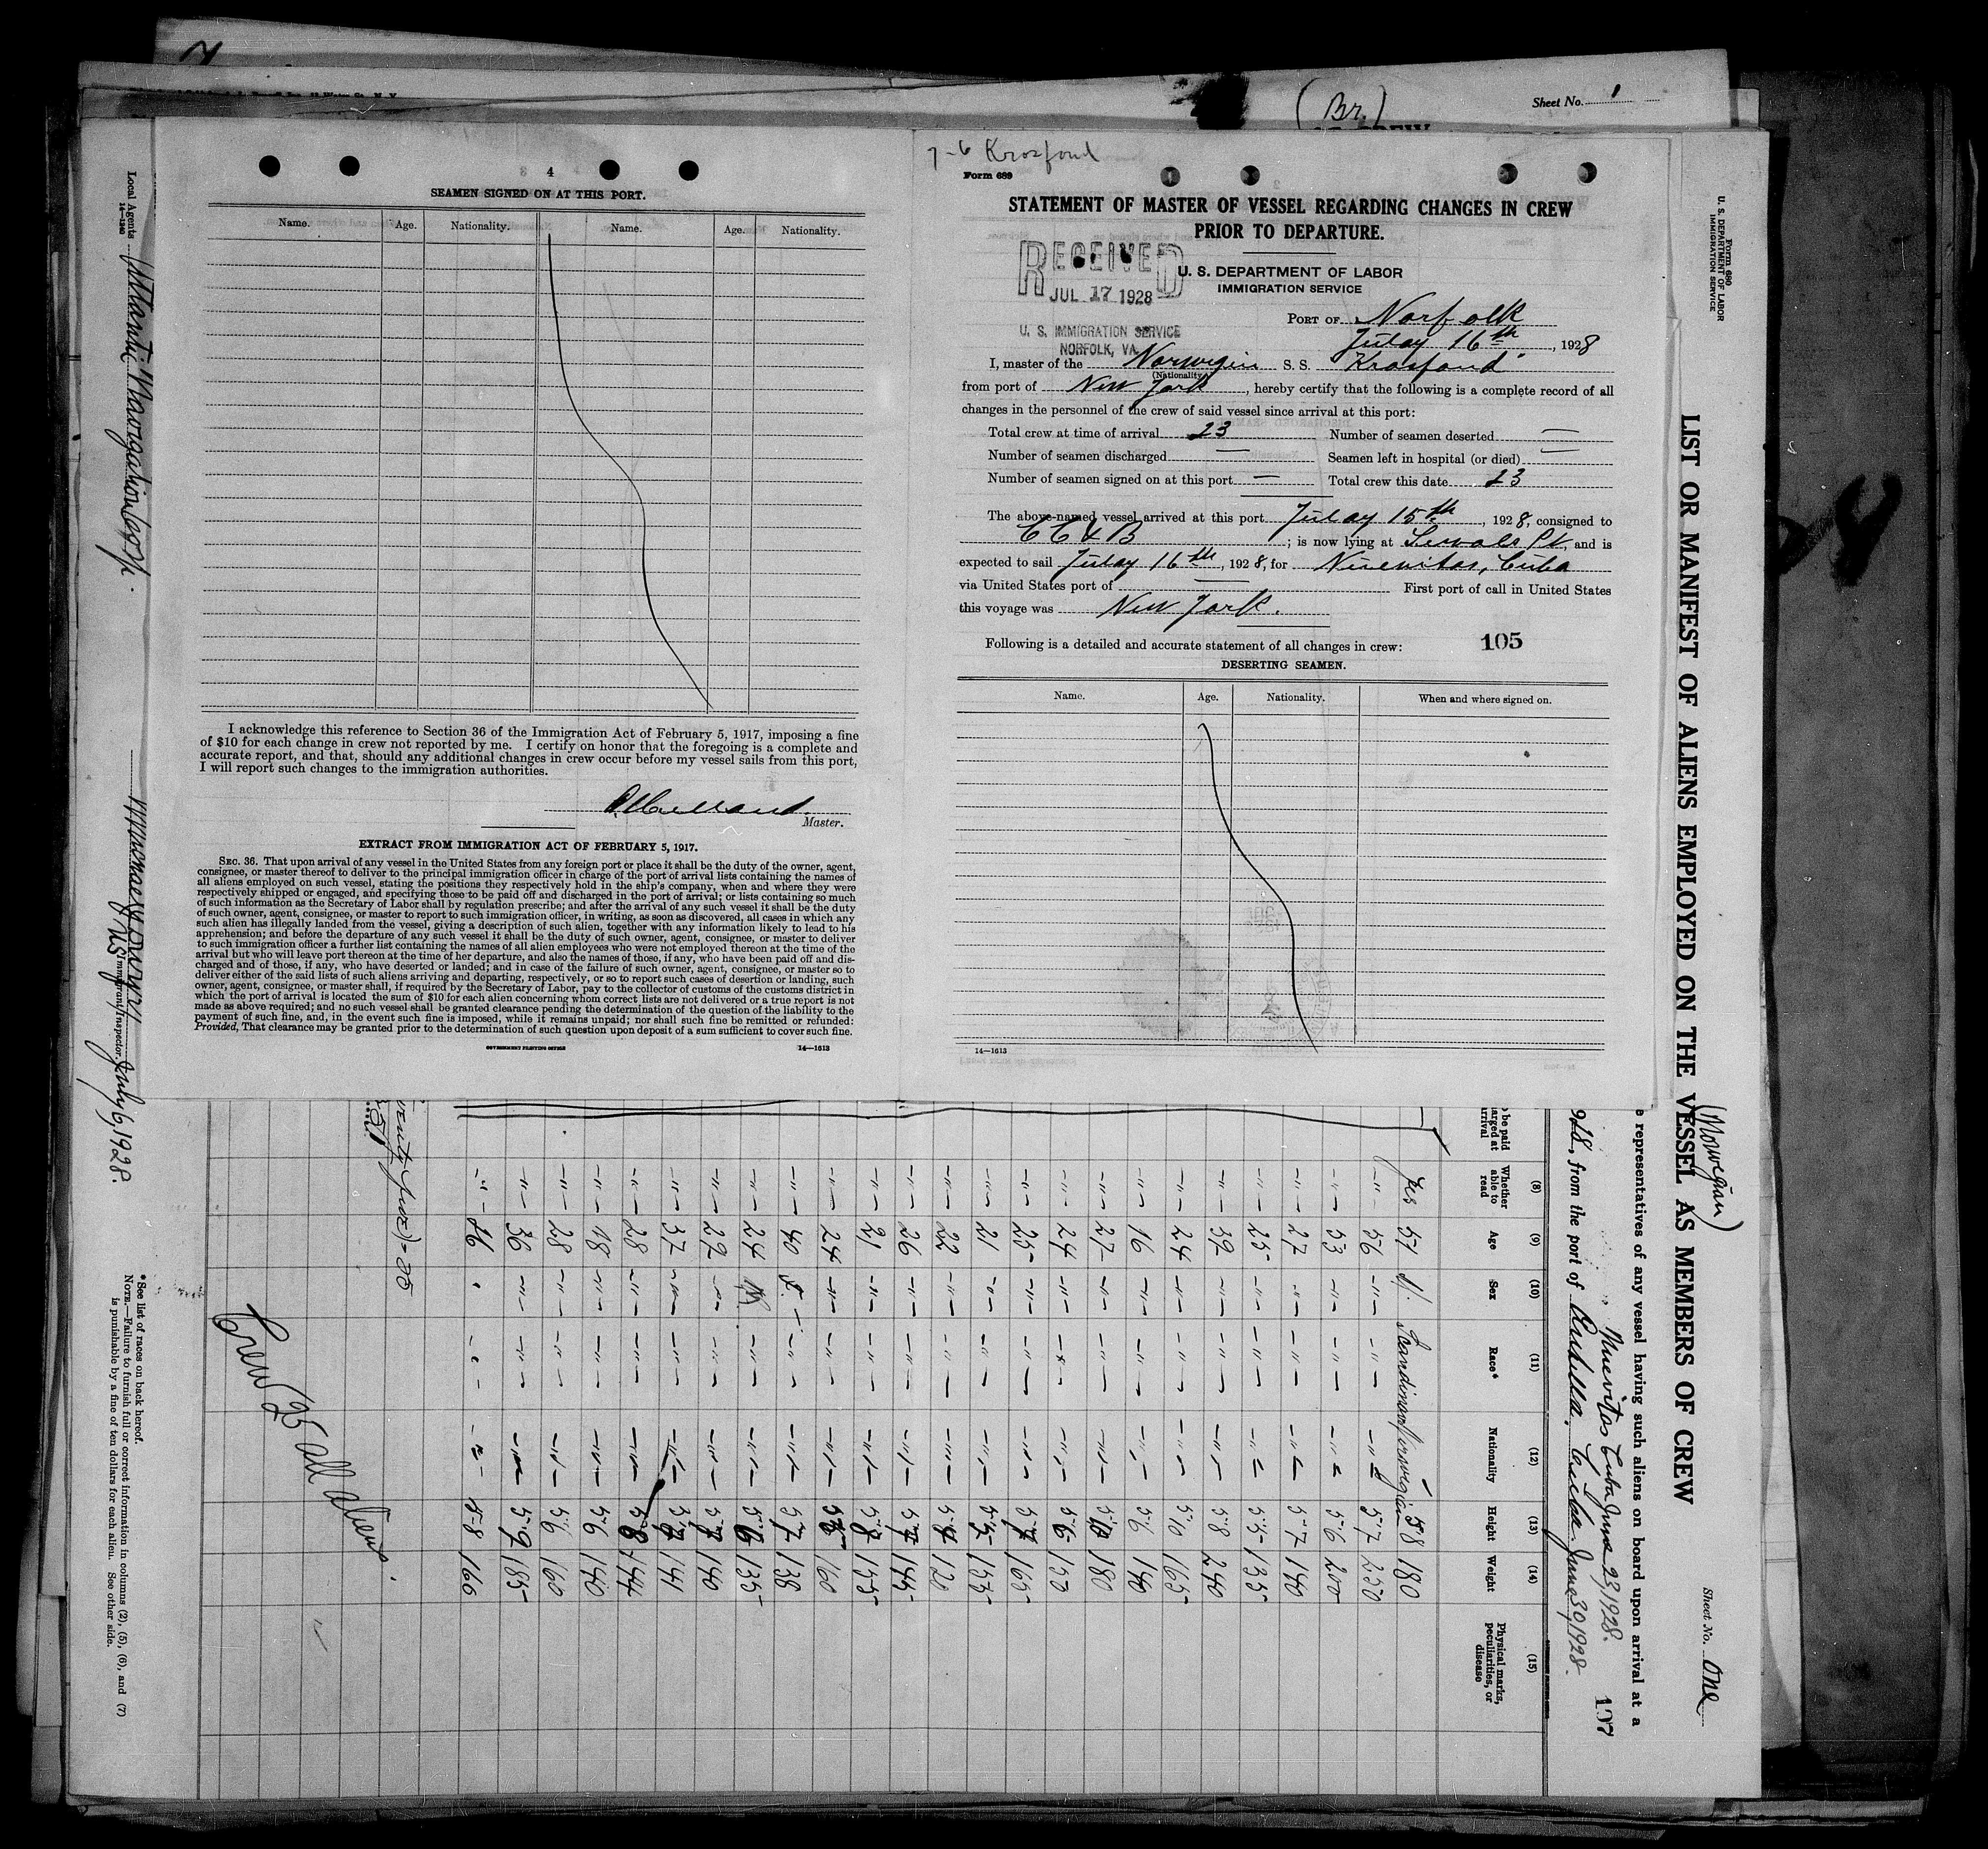 (Br.)
Sheet No. 1
4
SEAMEN SIGNED ON AT THIS PORT.
Name. Age. Nationality. Name. Age. Nationality.
I acknowledge this reference to Section 36 of the Immigration Act of February 5, 1917, imposing a fine
of $10 for each change in crew not reported by me. I certify on honor that the foregoing is a complete and
accurate report, and that, should any additional changes in crew occur before my vessel sails from this port,
I will report such changes to the immigration authorities.
Master.
EXTRACT FROM IMMIGRATION ACT OF FEBRUARY 5, 1917.
SEC. 36. That upon arrival of any vessel in the United States from any foreign port or place it shall be the duty of the owner, agent,
consignee, or master thereof to deliver to the principal immigration officer in charge of the port of arrival lists containing the names of
all aliens employed on such vessel, stating the positions they respectively hold in the ship's company, when and where they were
respectively shipped or engaged, and specifying those to be paid off and discharged in the port of arrival; or lists containing so much
of such information as the Secretary of Labor shall by regulation prescribe; and after the arrival of any such vessel it shall be the duty
of such owner, agent, consignee, or master to report to such immigration officer, in writing, as soon as discovered, all cases in which any
such alien has illegally landed from the vessel, giving a description of such alien, together with any information likely to lead to his
apprehension; and before the departure of any such vessel it shall be the duty of such owner, agent, consignee, or master to deliver
to such immigration officer a further list containing the names of all alien employees who were not employed thereon at the time of the
arrival but who will leave port thereon at the time of her departure, and also the names of those, if any, who have been paid off and dis-
charged and of those, if any, who have deserted or landed; and in case of the failure of such owner, agent, consignee, or master so to
deliver either of the said lists of such aliens arriving and departing, respectively, or so to report such cases of desertion or landing, such
owner, agent, consignee, or master shall, if required by the Secretary of Labor, pay to the collector of customs of the customs district in
which the port of arrival is located the sum of $10 for each alien concerning whom correct lists are not delivered or a true report is not
made as above required; and no such vessel shall be granted clearance pending the determination of the question of the liability to the
payment of such fine, and, in the event such fine is imposed, while it remains unpaid; nor shall such fine be remitted or refunded:
Provided, That clearance may be granted prior to the determination of such question upon deposit of a sum sufficient to cover such fine.
GOVERNMENT PRINTING OFFICE 14—1613
7-6 Krosfond
Form 689
STATEMENT OF MASTER OF VESSEL REGARDING CHANGES IN CREW
PRIOR TO DEPARTURE.
RECEIVED
JUL 17 1928
U. S. IMMIGRATION SERVICE
NORFOLK, VA.
U. S. DEPARTMENT OF LABOR
IMMIGRATION SERVICE
PORT OF Norfolk
Julay 16th, 1928
I, master of the Norwegin S. S. Krosfond
(Nationality)
from port of New York, hereby certify that the following is a complete record of all
changes in the personnel of the crew of said vessel since arrival at this port:
Total crew at time of arrival 23 Number of seamen deserted —
Number of seamen discharged — Seamen left in hospital (or died) —
Number of seamen signed on at this port — Total crew this date 23
The above-named vessel arrived at this port Julay 15th, 1928, consigned to
C C & B; is now lying at Sewals Pt, and is
expected to sail Julay 16th, 1928, for Nuevitas, Cuba
via United States port of — First port of call in United States
this voyage was New York.
Following is a detailed and accurate statement of all changes in crew: 105
DESERTING SEAMEN.
Name. Age. Nationality. When and where signed on.
14—1613
Form 680
U. S. DEPARTMENT OF LABOR
IMMIGRATION SERVICE
Sheet No. One
(Norwegian)
LIST OR MANIFEST OF ALIENS EMPLOYED ON THE VESSEL AS MEMBERS OF CREW
representatives of any vessel having such aliens on board upon arrival at a
Nuevitas Cuba June 23, 1928. 107
928, from the port of Antilla, Cuba June 30, 1928.
(8) (9) (10) (11) (12) (13) (14) (15)
Whether able to read Age Sex Race* Nationality Height Weight Physical marks, peculiarities, or disease
yes 57 Scandinav Norwegian 5'8 180
56 5-7 250
53 5-6 200
27 5-7 140
25 5-5 135
39 5-8 240
24 5-10 165
16 5-6 140
27 180
24 5-6 150
25 165
21 5-5 155
22 120
26 145
21 155
24 160
40 5-7 138
24 135
29 140
37 141
28 144
18 5-6 140
28 5-6 160
36 5-9 185
5-8 160
Crew 25 all aliens.
*See list of races on back hereof.
NOTE.—Failure to furnish full or correct information in columns (2), (5), (6), and (7)
is punishable by a fine of ten dollars for each alien. See other side.
Local Agents
14—1240
Immigrant Inspector. July 6, 1928.